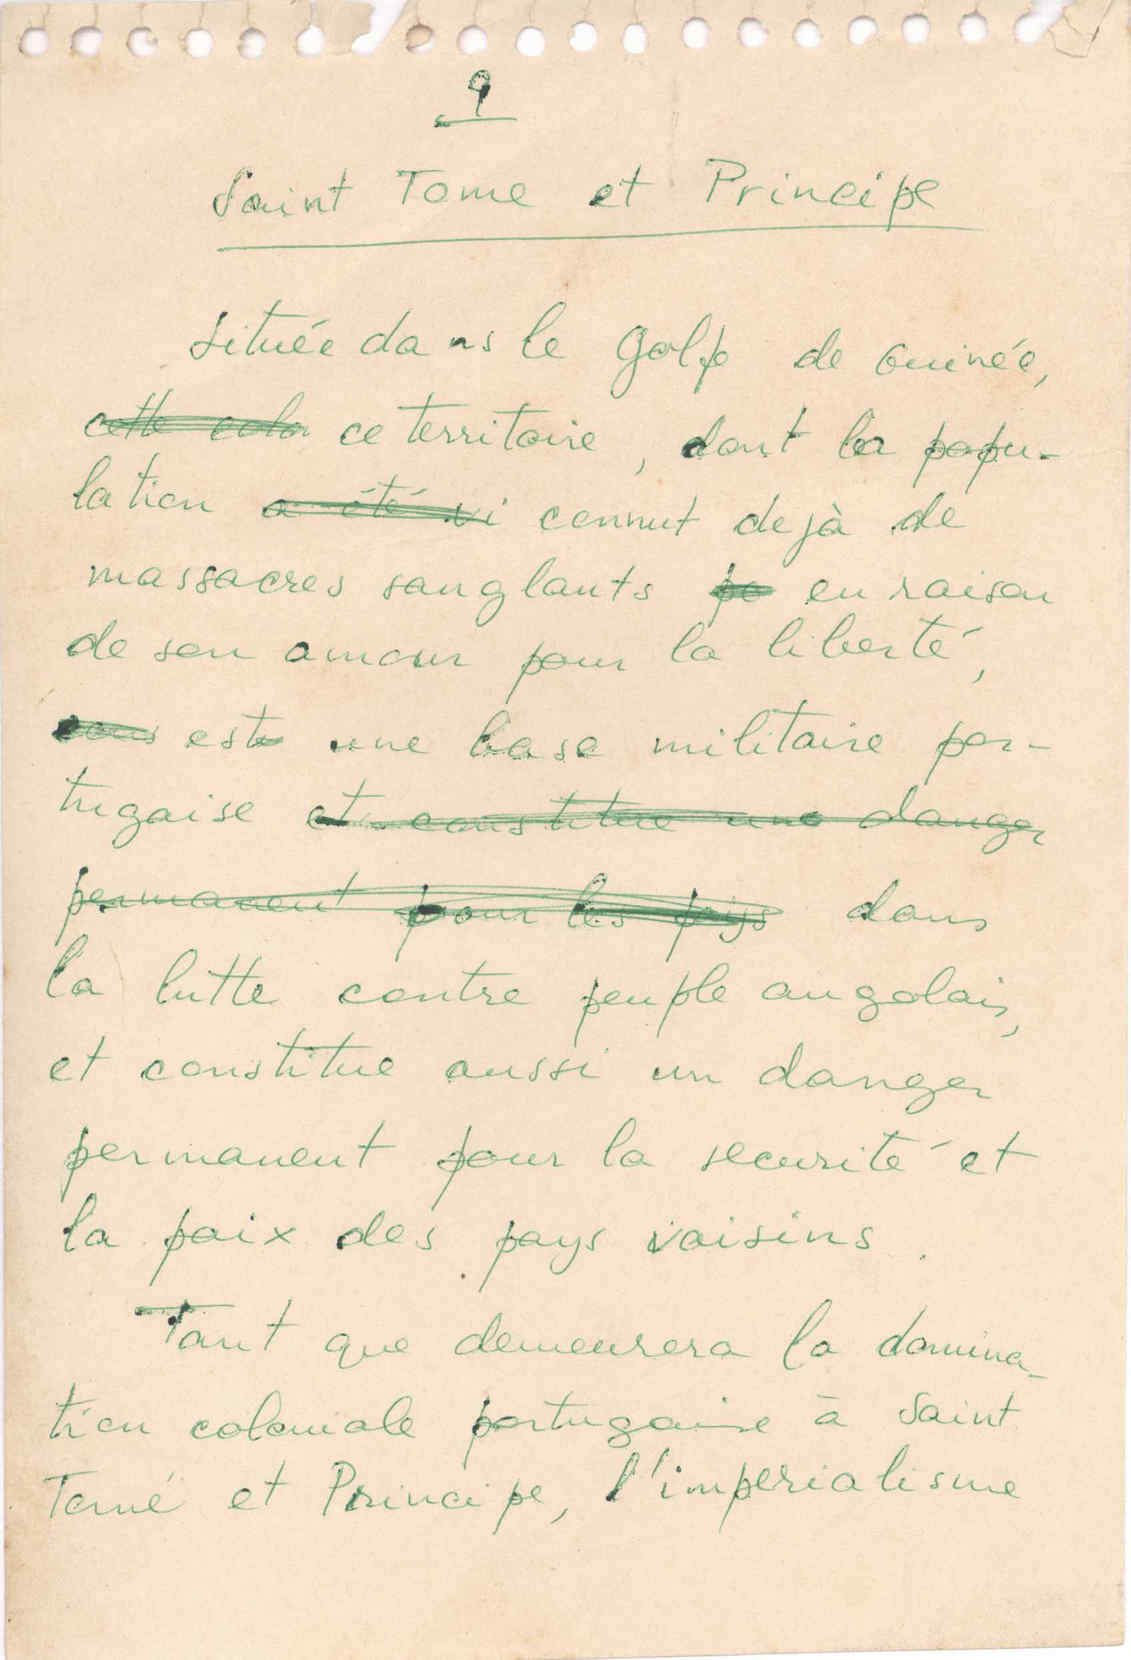 9
Saint Tome et Principe
Située dans le golfe de Guinée,
cette colo ce territoire, dont la popu-
lation a été vi connut dejà de
massacres sanglants po en raison
de son amour pour la liberté,
sous est une base militaire por-
tugaise et constitue une danger
permanent pour les pays dans
la lutte contre peuple angolais,
et constitue aussi un danger
permanent pour la securité et
la paix des pays voisins.
Tant que demeurera la domina-
tion coloniale portugaise à Saint
Tomé et Principe, l'imperialisme